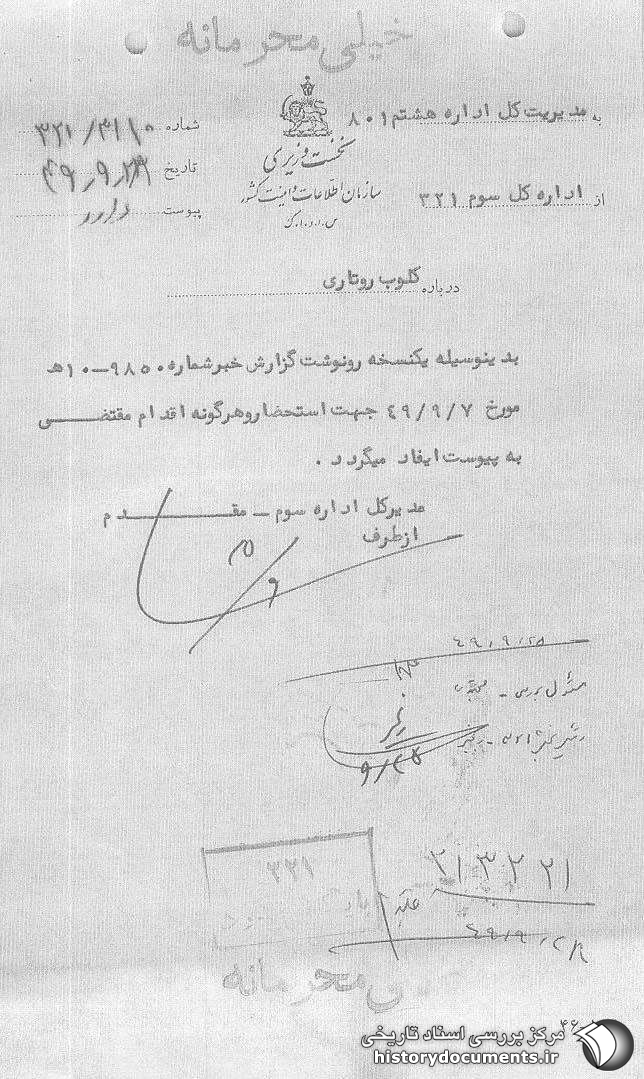 خیلی محرمانه
به مدیریت کل اداره هشتم ۸۰۱
نخست وزیری
سازمان اطلاعات و امنیت کشور
س.ا.و.ا.ک
شماره ۳۲۱/۳۱۱۰
از اداره کل سوم ۳۲۱
تاریخ
پیوست دارد
درباره کلوب روتاری
بدینوسیله یکنسخه رونوشت گزارش خبر شماره ۹۸۵۰–۱۰ هـ
مورخ ۴۹/۹/۷ جهت استحضار و هرگونه اقدام مقتضی
به پیوست ایفاد میگردد .
مدیرکل اداره سوم – مقدم
از طرف
۴۹/۹/۲۵
۳۲۱
۴۹/۹/۲۸
خیلی محرمانه
مرکز بررسی اسناد تاریخی
historydocuments.ir